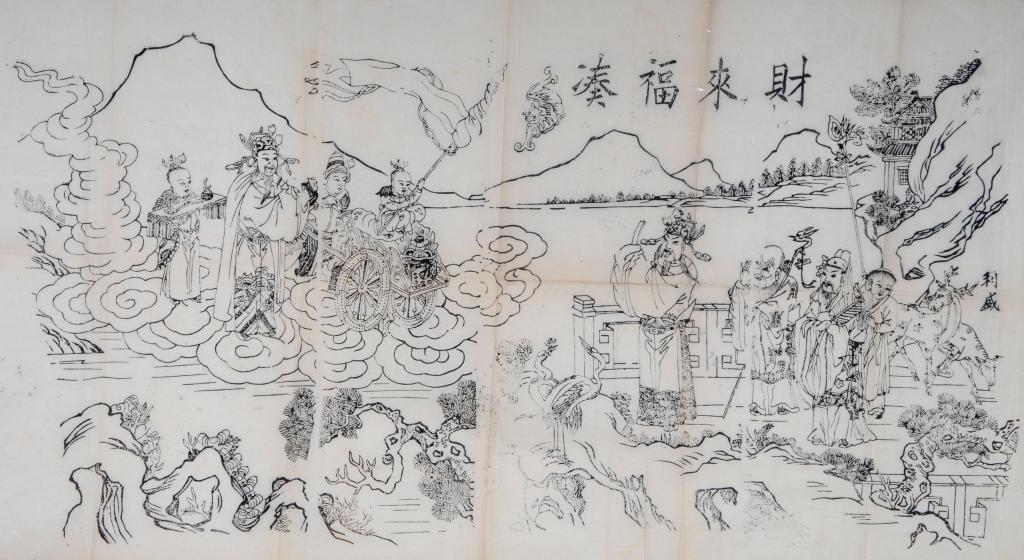 財來福湊
利盛